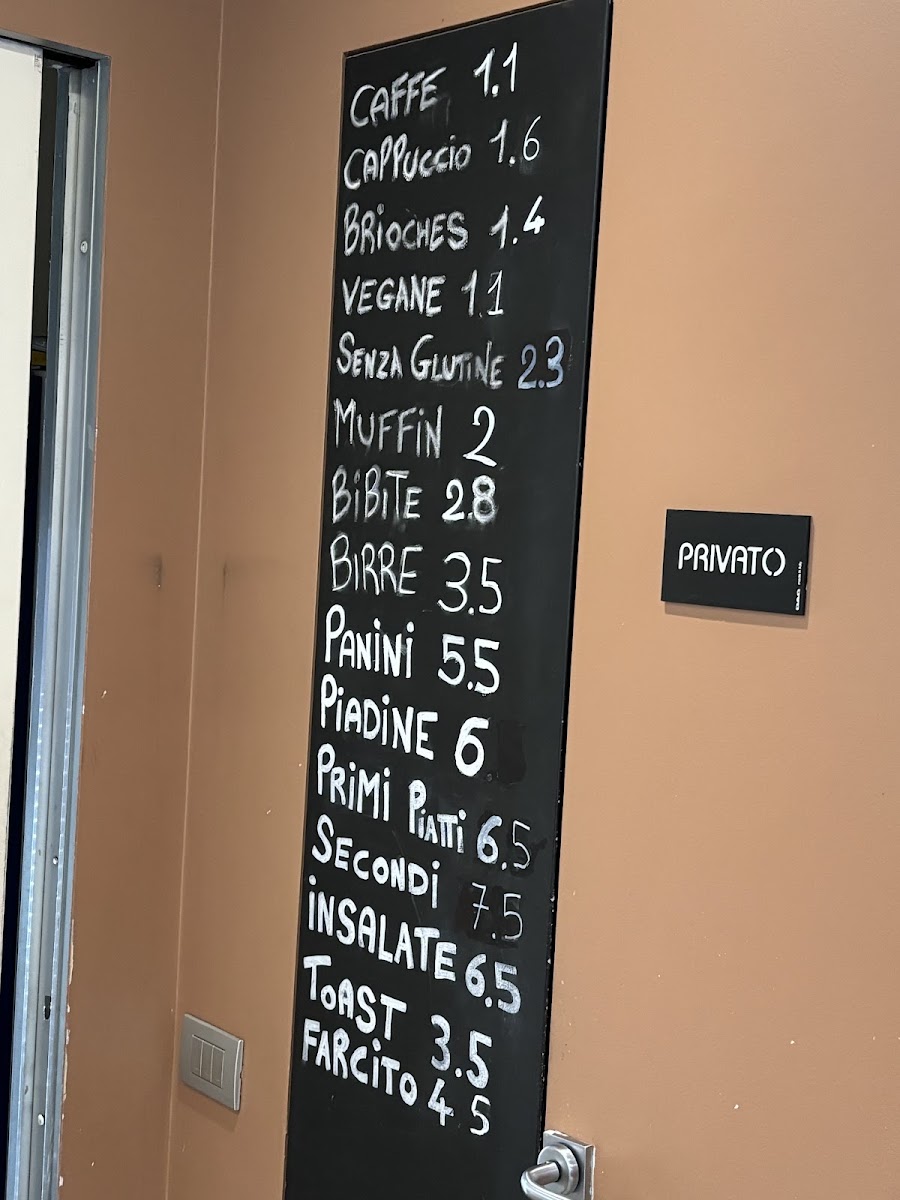 CAFFE 1.1
CAPPUCCIO 1.6
BRIOCHES 1.4
VEGANE 1.1
SENZA GLUTINE 2.3
MUFFIN 2
BIBITE 2.8
BIRRE 3.5
PANINI 5.5
PIADINE 6
PRIMI PIATTI 6.5
SECONDI 7.5
INSALATE 6.5
TOAST 3.5
FARCITO 4 5
PRIVATO